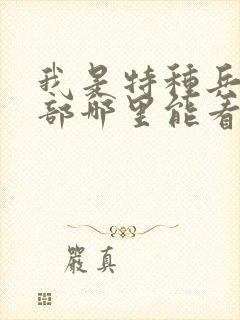 我是特種兵
部哪里能看
嚴真